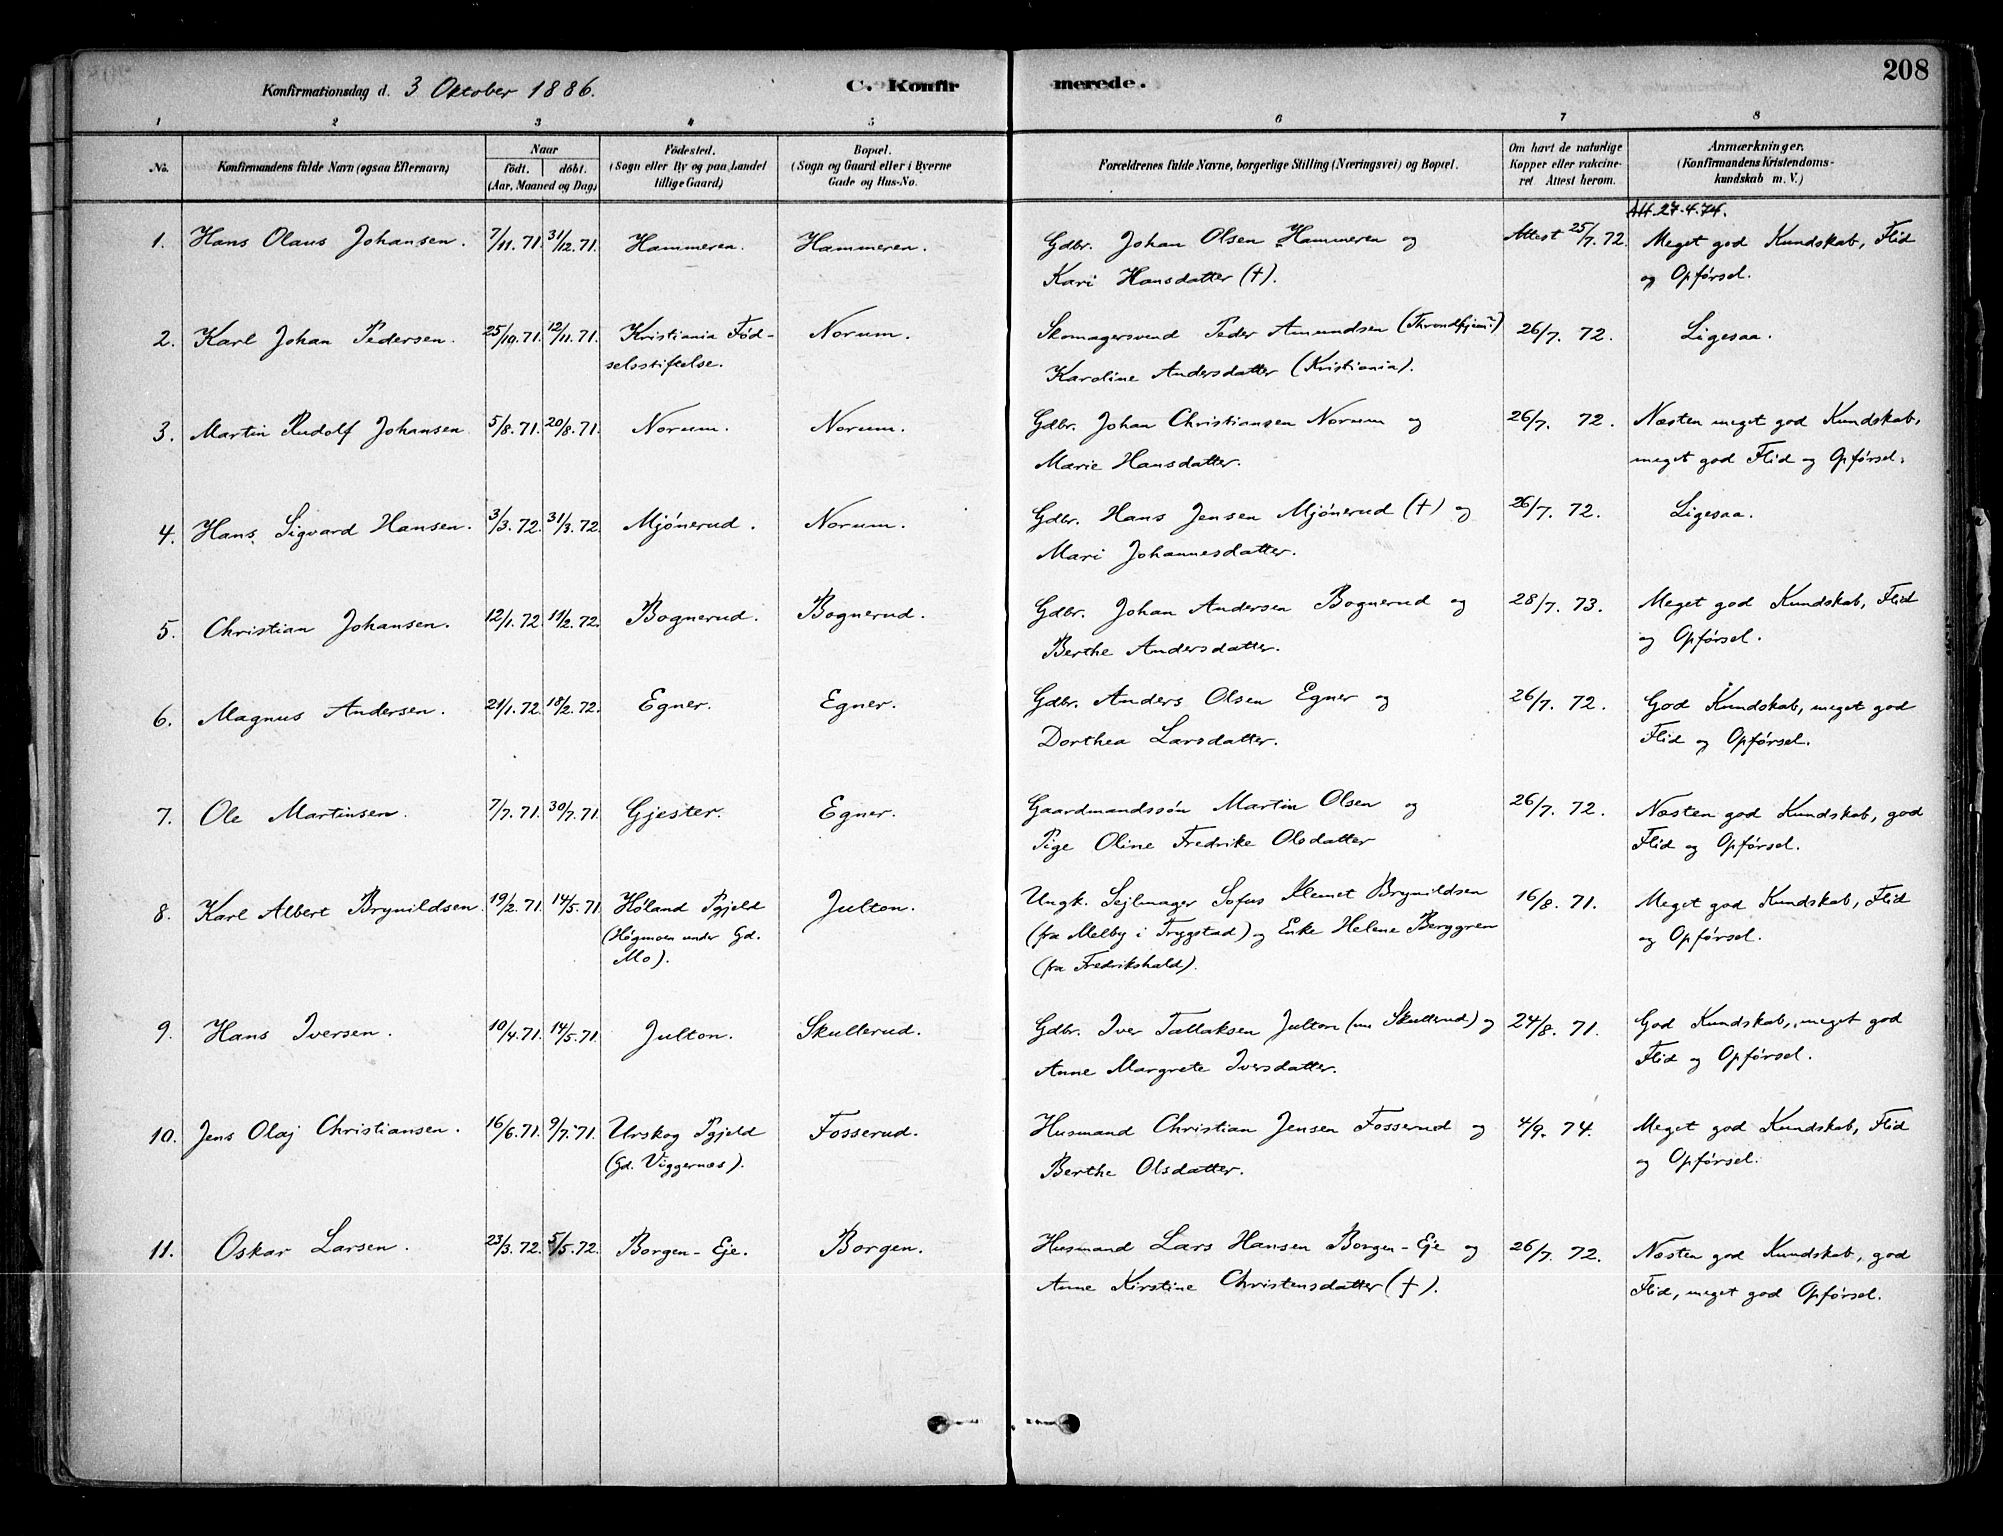 208
Konfirmationsdag d. 3 Oktober 1886. C. Konfir merede.
1 2 3 4 5 6 7 8
No. Konfirmandens fulde Navn (ogsaa Efternavn) Naar født. døbt. (Aar, Maaned og Dag) Fødested. (Sogn eller By og paa Landet tillige Gaard) Bopæl. (Sogn og Gaard eller i Byerne Gade og Hus-No. Forældrenes fulde Navne, borgerlige Stilling (Næringsvei) og Bopæl. Om havt de naturlige Kopper eller vakcineret Attest herom. Anmærkninger. (Konfirmandens Kristendomskundskab m. V.)
Att. 27.4.74.
1. Hans Olaus Johansen. 7/11.71. 31/12.71. Hammeren. Hammeren. Gdbr. Johan Olsen Hammeren og Attest 25/7.72. Meget god Kundskab, Flid
Kari Hansdatter (†). og Opførsel.
2. Karl Johan Pedersen. 25/10.71. 12/11.71. Kristiania Fød- Norum. Skomagersvend Peder Amundsen (Throndhjem) 26/7. 72. Ligesaa.
selsstiftelse. Karoline Andersdatter (Kristiania).
3. Martin Rudolf Johansen 5/8.71. 20/8.71. Norum. Norum. Gdbr. Johan Christiansen Norum og 26/7. 72. Næsten meget god Kundskab,
Marie Hansdatter. meget god Flid og Opførsel.
4. Hans Sigvard Hansen. 3/3.72. 31/3.72. Mjønerud. Norum. Gdbr. Hans Jensen Mjønerud (†) og 26/7. 72. Ligesaa.
Mari Johannesdatter.
5. Christian Johansen. 12/1.72. 11/2.72. Bognerud. Bognerud. Gdbr. Johan Andersen Bognerud og 28/7. 73. Meget god Kundskab, Flid
Berthe Andersdatter. og Opførsel.
6. Magnus Andersen. 21/1.72. 18/2.72. Egner. Egner. Gdbr. Anders Olsen Egner og 26/7. 72. God Kundskab, meget god
Dorthea Larsdatter. Flid og Opførsel.
7. Ole Martinsen. 7/7.71. 30/7.71. Gjester. Egner. Gaardmandssøn Martin Olsen og 26/7. 72. Næsten god Kundskab, god
Pige Oline Fredrike Olsdatter Flid og Opførsel.
8. Karl Albert Brynildsen. 19/2.71. 14/5.71. Høland Pgjeld Julton. Ungk. Sejlmager Sofus Klemet Brynildsen 16/8. 71. Meget god Kundskab, Flid
(Høgmoen under Gd. (fra Melby i Trygstad) og Enke Helene Berggren og Opførsel.
Mo). (fra Fredrikshald).
9. Hans Iversen. 10/4.71. 14/5.71. Julton. Skullerud. Gdbr. Iver Tallaksen Julton (nu Skullerud) og 24/8. 71. God Kundskab, meget god
Anne Margrete Iversdatter. Flid og Opførsel.
10. Jens Olaj Christiansen. 16/6.71. 9/7.71. Urskog Pgjeld Fosserud. Husmand Christian Jensen Fosserud og 4/9. 74. Meget god Kundskab, Flid
(Gd. Viggernæs). Berthe Olsdatter. og Opførsel.
11. Oskar Larsen. 23/3.72. 5/5.72. Borgen-Eje. Borgen. Husmand Lars Hansen Borgen-Eje og 26/7. 72. Næsten god Kundskab, god
Anne Kirstine Christensdatter (†). Flid, meget god Opførsel.